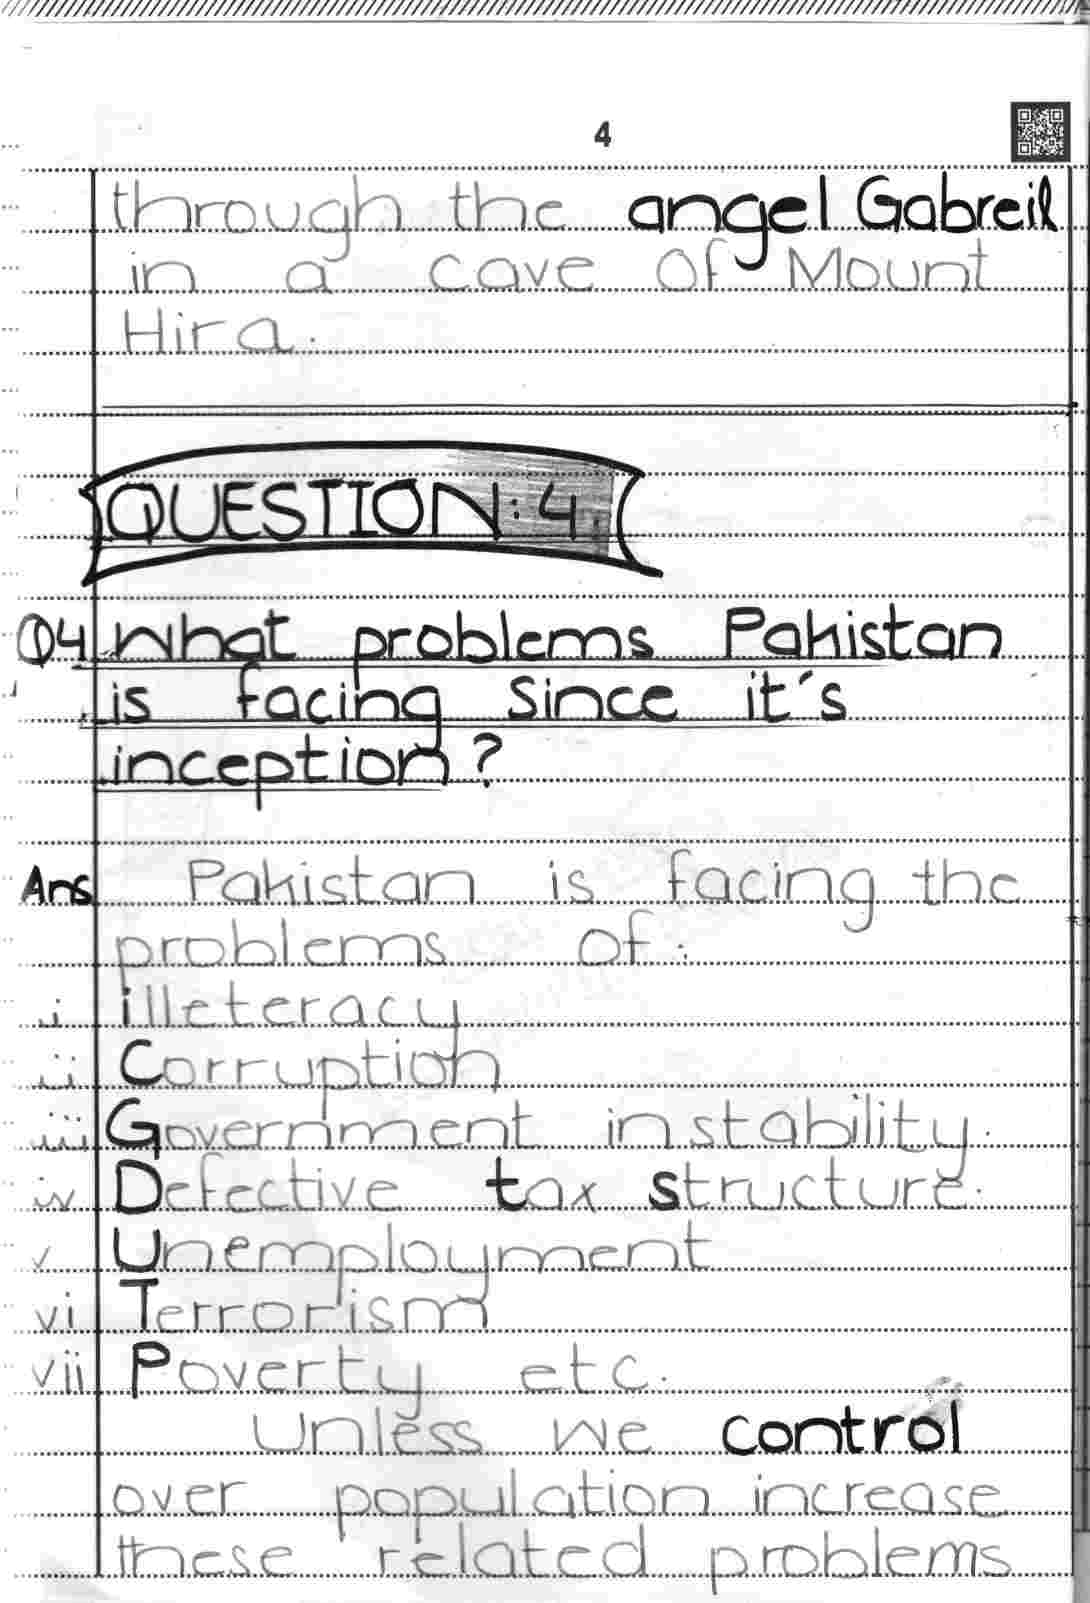 4
through the angel Gabreil
in a cave of Mount
Hira.
QUESTION: 4.
Q4 What problems Pakistan
is facing since it's
inception?
Ans Pakistan is facing the
problems of:
i illeteracy
ii Corruption
iii Government instability.
iv Defective tax structure.
v Unemployment
vi Terrorism
vii Poverty etc.
Unless we control
over population increase
these related problems